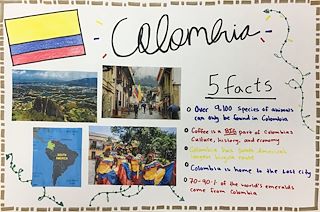 - Colombia -
5 facts
Over 9,100 species of animals
can only be found in Colombia
Coffee is a BIG part of Colombia's
Culture, history, and economy
Colombia has South America's
longest bicycle route
Colombia is home to the Lost City
70-90% of the world's emeralds
come from Colombia
SOUTH
AMERICA